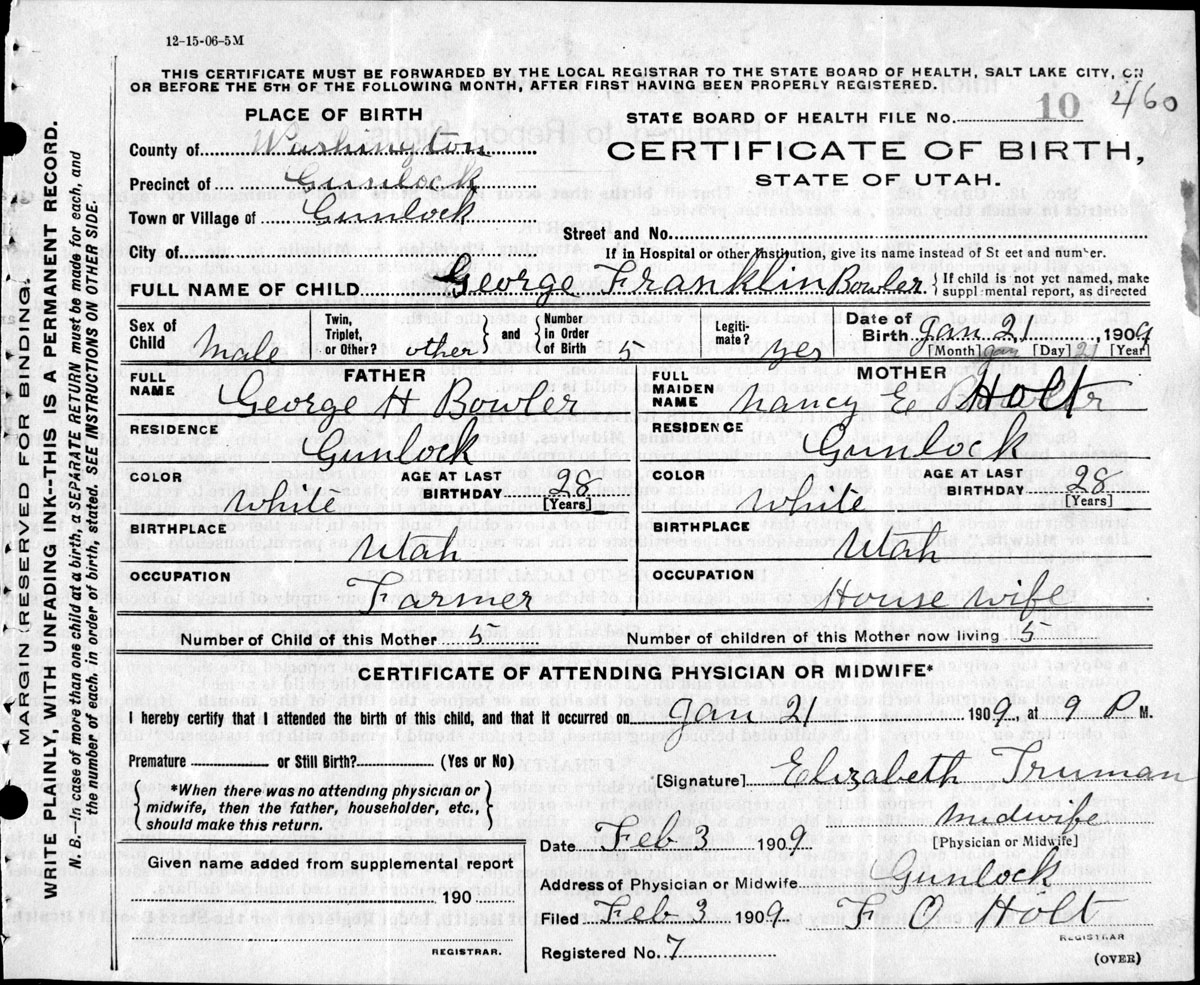 12-15-06-5M
THIS CERTIFICATE MUST BE FORWARDED BY THE LOCAL REGISTRAR TO THE STATE BOARD OF HEALTH, SALT LAKE CITY, ON
OR BEFORE THE 5TH OF THE FOLLOWING MONTH, AFTER FIRST HAVING BEEN PROPERLY REGISTERED.
PLACE OF BIRTH
STATE BOARD OF HEALTH FILE No. 10 460
County of Washington
CERTIFICATE OF BIRTH,
STATE OF UTAH.
Precinct of Gunlock
Town or Village of Gunlock
Street and No.
City of
If in Hospital or other Institution, give its name instead of St eet and num er.
FULL NAME OF CHILD George Franklin Bowler { If child is not yet named, make
suppl mental report, as directed
Sex of Child Male
Twin, Triplet, or Other? other } and { Number in Order of Birth 5
Legiti-mate? yes
Date of Birth Jan 21, 1909
[Month] Jan [Day] 21 [Year]
FATHER
FULL NAME George H Bowler
RESIDENCE Gunlock
COLOR White AGE AT LAST BIRTHDAY 28 [Years]
BIRTHPLACE Utah
OCCUPATION Farmer
MOTHER
FULL MAIDEN NAME Nancy E Holt
RESIDENCE Gunlock
COLOR White AGE AT LAST BIRTHDAY 28 [Years]
BIRTHPLACE Utah
OCCUPATION House wife
Number of Child of this Mother 5 Number of children of this Mother now living 5
CERTIFICATE OF ATTENDING PHYSICIAN OR MIDWIFE*
I hereby certify that I attended the birth of this child, and that it occurred on Jan 21 1909, at 9 P M.
Premature or Still Birth? (Yes or No)
[Signature] Elizabeth Truman
{ *When there was no attending physician or
midwife, then the father, householder, etc.,
should make this return. }
midwife
[Physician or Midwife]
Date Feb 3 1909
Given name added from supplemental report
190
REGISTRAR.
Address of Physician or Midwife Gunlock
Filed Feb 3 1909 F O Holt
REGISTRAR
Registered No. 7
(OVER)
MARGIN RESERVED FOR BINDING.
WRITE PLAINLY, WITH UNFADING INK--THIS IS A PERMANENT RECORD.
N. B.--In case of more than one child at a birth, a SEPARATE RETURN must be made for each, and
the number of each, in order of birth, stated. SEE INSTRUCTIONS ON OTHER SIDE.